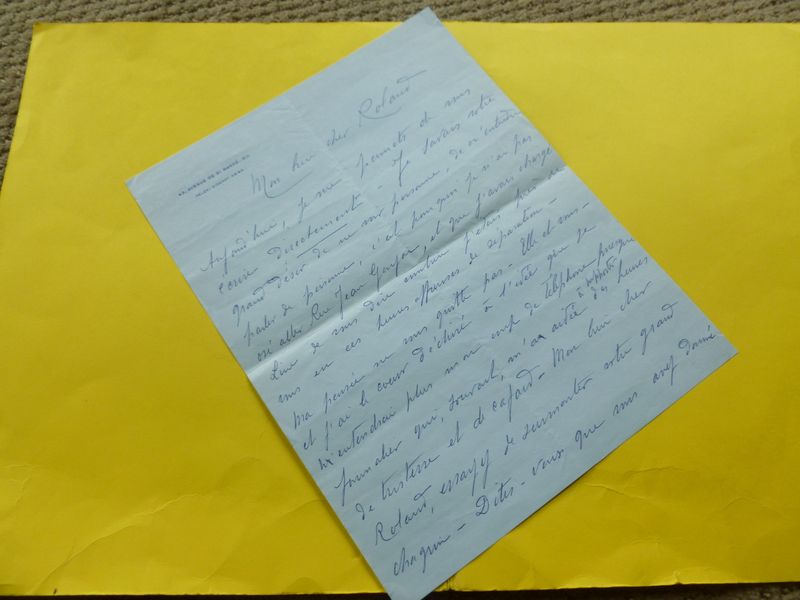 Mon bien cher Roland
Aujourd'hui, je me permets de vous
écrire directement - Je savais votre
grand désir de ne voir personne, de n'entendre
parler de personne, c'est pourquoi je n'ai pas
osé aller Rue Jean Goujon, et que j'avais chargé
Line de vous dire combien j'étais près de
vous en ces heures affreuses de séparation -
Ma pensée ne vous quitte pas - Elle et vous -
et j'ai le cœur déchiré à l'idée que je
n'entendrai plus mon coup de téléphone presque
journalier qui, souvent, m'a aidée à supporter des heures
de tristesse et de cafard - Mon bien cher
Roland, essayez de surmonter votre grand
chagrin - Dites-vous que vous avez donné